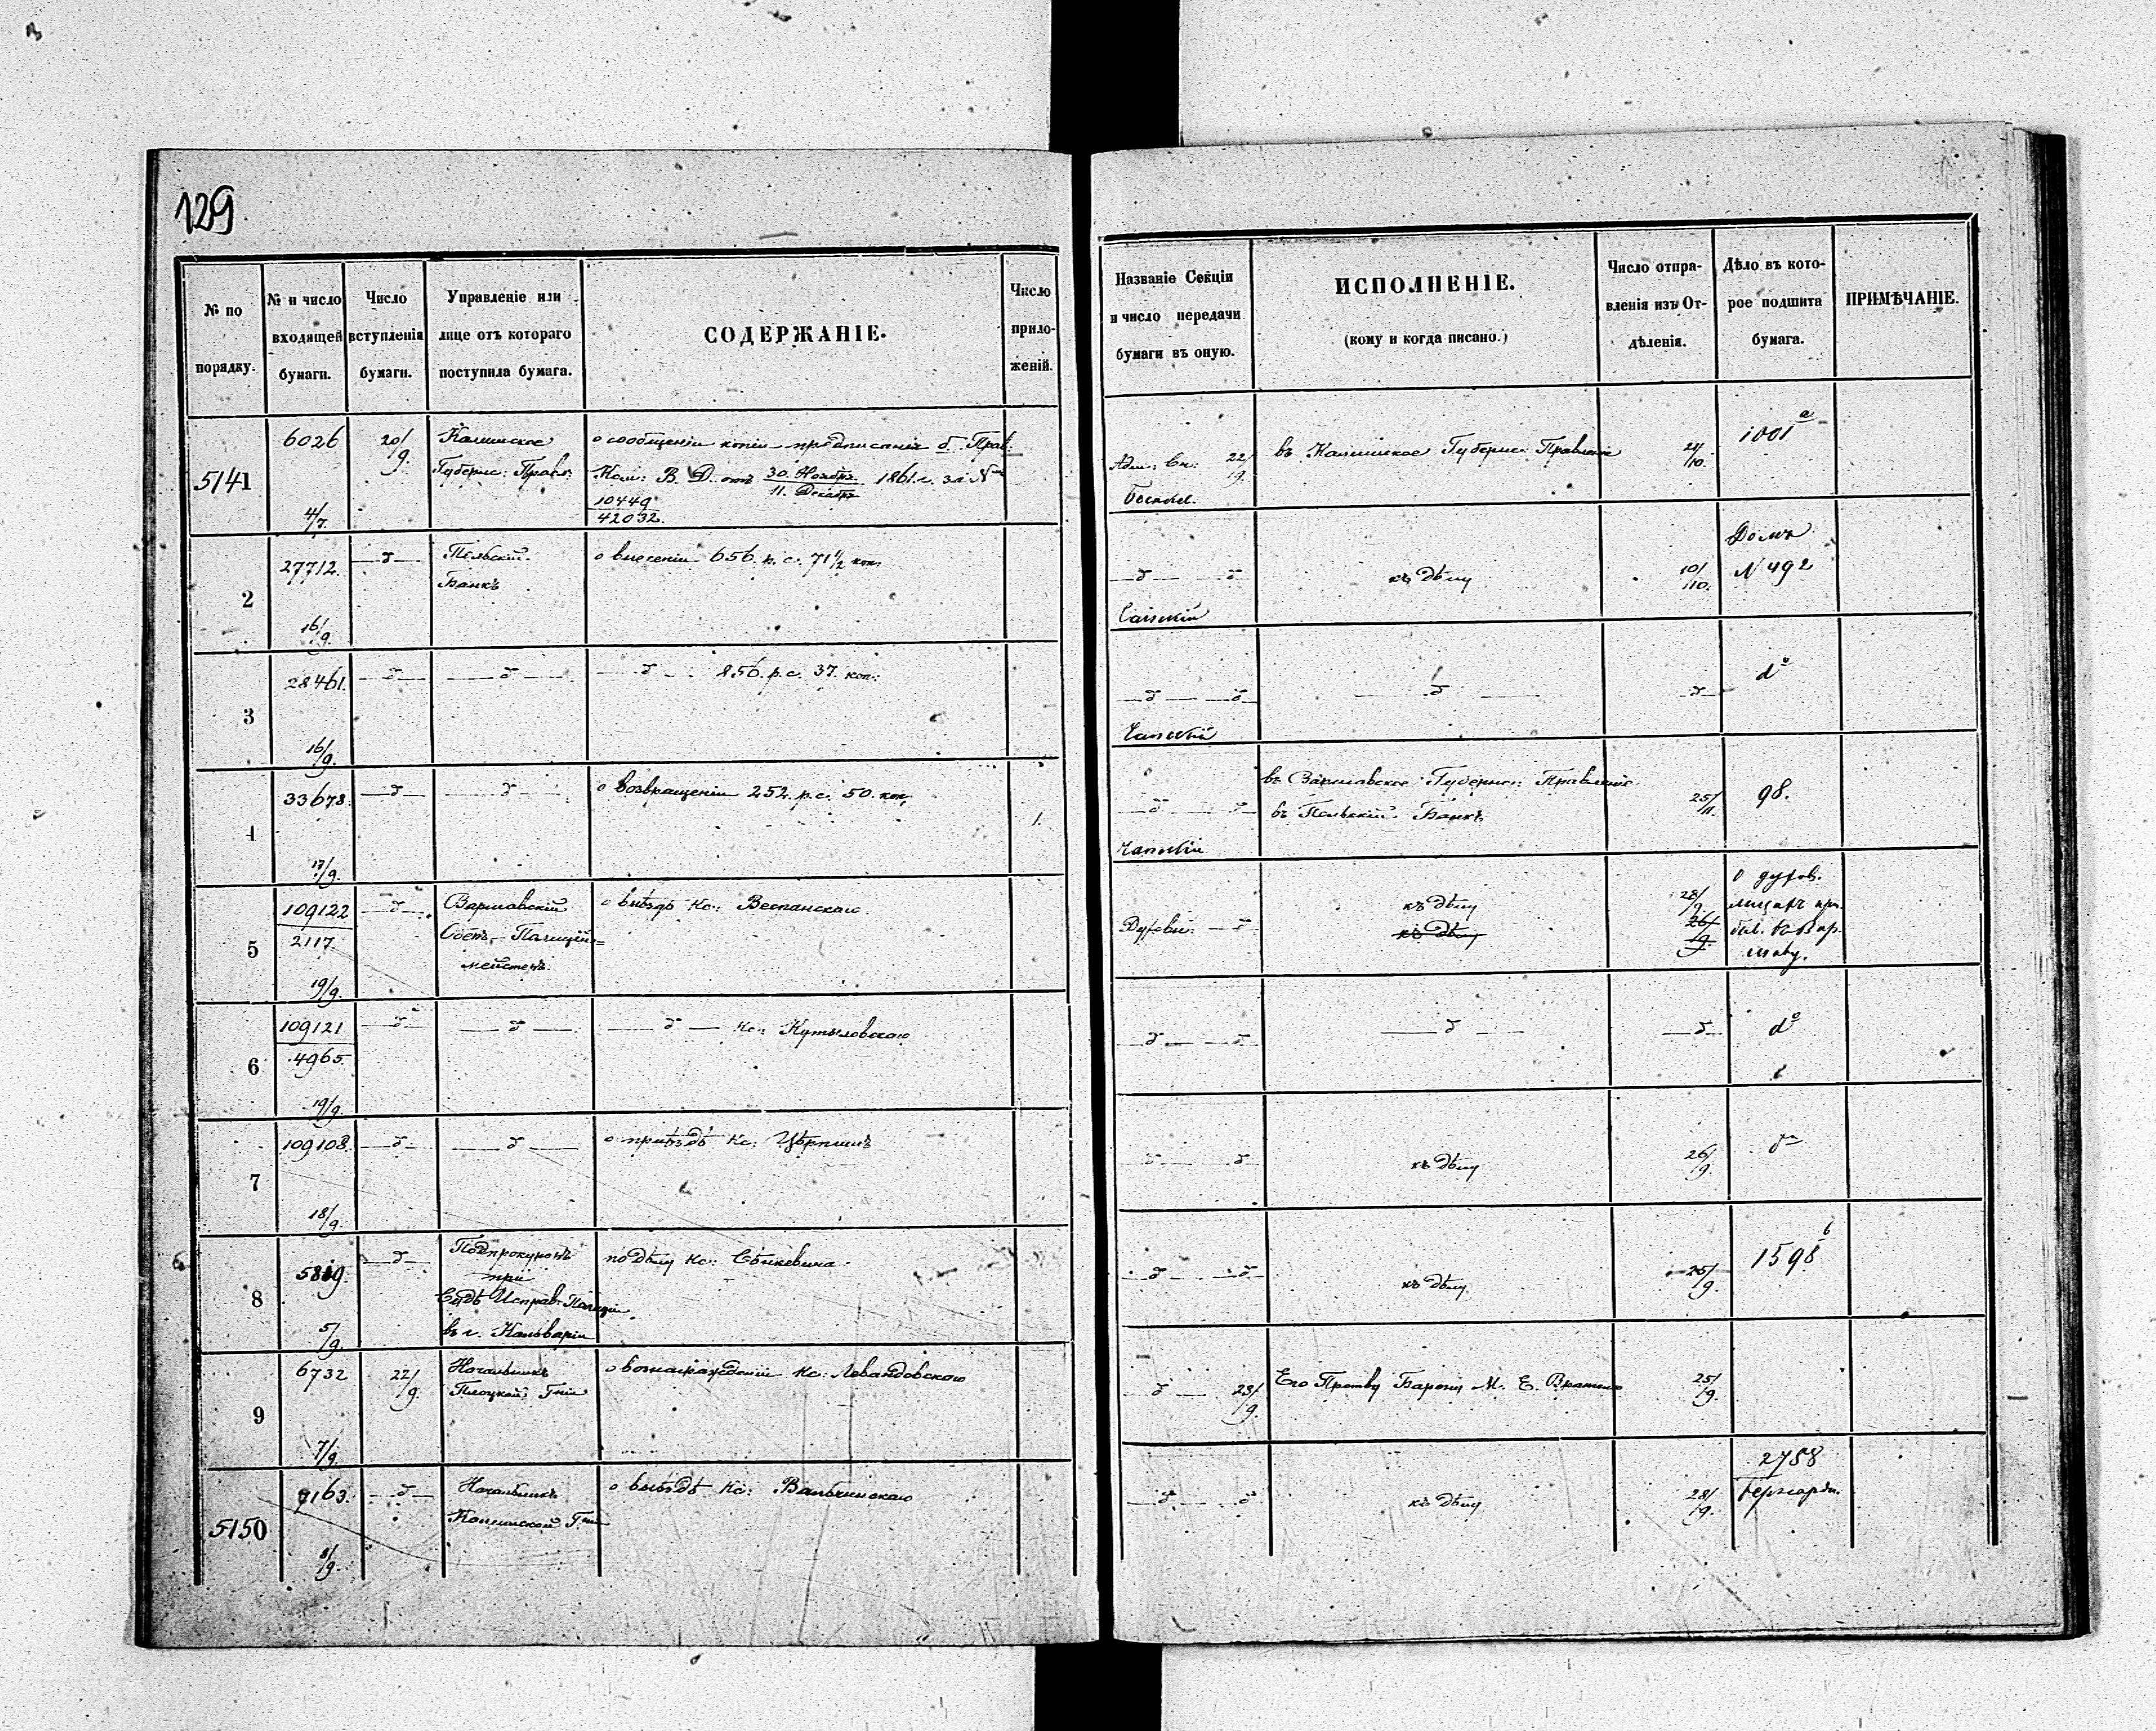 129
№ по порядку.
№ и число входящей бумаги.
Число вступленія бумаги.
Управленіе или лице отъ котораго поступила бумага.
СОДЕРЖАНІЕ.
Число приложеній.
Названіе Секціи и число передачи бумаги въ оную.
ИСПОЛНЕНІЕ.
(кому и когда писано.)
Число отправленія изъ Отдѣленія.
Дѣло въ которое подшита бумага.
ПРИМѢЧАНІЕ.
5141
6026
4/7.
20/9.
Калишское
Губернс: Правл:
о сообщеніи копіи предписанія б. Прав:
Ком: В. Д. отъ 30. Ноябр. / 11. Декабр. 1861 г. за №
10449
42032.
Адм: Ск: 22/9.
въ Калишское Губернс: Правленіе
21/10.
1001 a
2
27712.
16/9.
Польскій
Банкъ
о внесеніи 656. р. с. 71 1/2 коп.
къ дѣлу
10/10.
Домъ
N 492
3
28461.
16/9.
856. р. с. 37. коп:
dº
4
33678.
17/9.
о возвращеніи 252. р. с. 50. коп.
1.
въ Варшавское Губернс: Правленіе
въ Польскій Банкъ
25/11.
98.
5
109122
2117.
19/9.
Варшавскій
Оберъ-Полицій=
мейстеръ.
о выѣздѣ Кс: Веспанскаго.
Духовн:
къ дѣлу
къ дѣлу
28/9
26/9
о духов.
лицахъ при-
был. въ Вар-
шаву.
6
109121
4965.
19/9.
Кс: Кутыловскаго
dº
7
109108.
18/9.
о приѣздѣ Кс:
къ дѣлу
26/9
8
5819
5/9.
Подпрокуроръ
при
Судѣ Исправ. Полиціи
въ г. Кальваріи
по дѣлу Кс: Сѣнкевича.
къ дѣлу
25/9.
1598 b
9
6732
7/9.
22/9.
Начальникъ
Плоцкой Гніи
о вознагражденіи Кс: Левандовскаго
23/9.
Его Прству Барону М. Е. Врангелю
25/9.
5150
7163.
8/9.
Начальникъ
Калишской Гніи
о выѣздѣ Кс:
къ дѣлу
28/9.
2788
Бернарди.